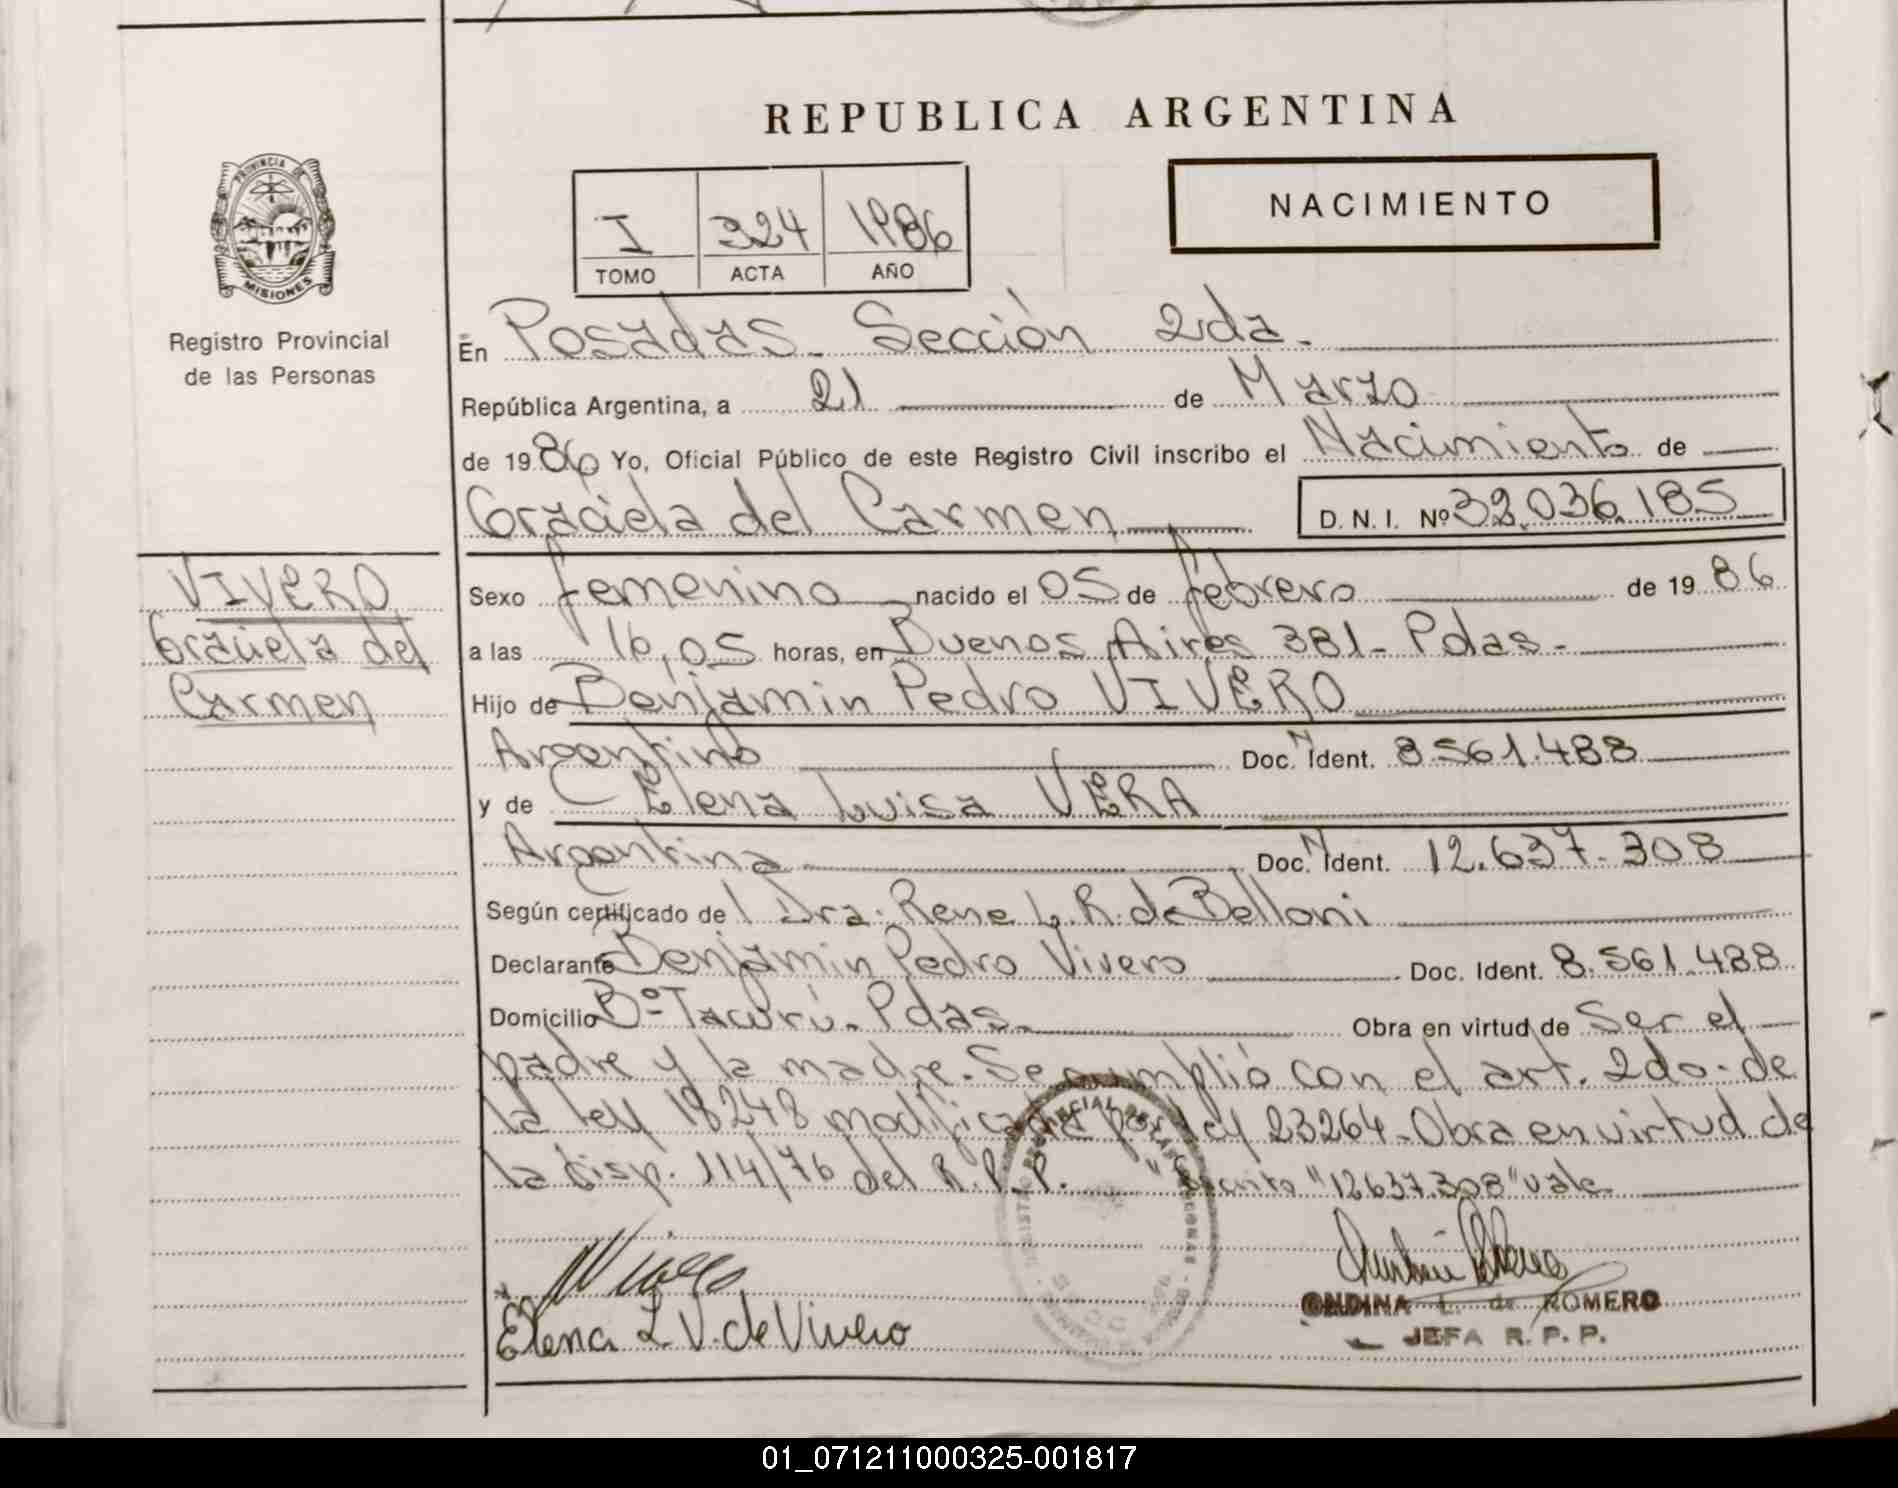 REPUBLICA ARGENTINA
PROVINCIA DE
MISIONES
Registro Provincial
de las Personas
I 324 1986
TOMO ACTA AÑO
NACIMIENTO
En Posadas. Sección 2da.
República Argentina, a 21 de Marzo
de 1986 Yo, Oficial Público de este Registro Civil inscribo el Nacimiento de
Graciela del Carmen D. N. I. Nº 32.036.185
VIVERO
Graciela del
Carmen
Sexo femenino nacido el 05 de febrero de 1986
a las 16,05 horas, en Buenos Aires 381- Pdas.
Hijo de Benjamin Pedro VIVERO
Argentino Doc. N Ident. 8.561.488
y de Elena Luisa VERA
Argentina Doc. N Ident. 12.637.308
Según certificado de Dra. Rene L. R. de Belloni
Declarante Benjamin Pedro Vivero Doc. Ident. 8.561.488
Domicilio Bº Tacurú. Pdas. Obra en virtud de Ser el
padre y la madre. Se cumplió con el art. 2do. de
la ley 18248 modificada por ley 23264. Obra en virtud de
la Disp. 114/76 del R.P.P. "12637.308" vale.
Elena L V. de Vivero
ONDINA L. de ROMERO
JEFA R. P. P.
01_071211000325-001817